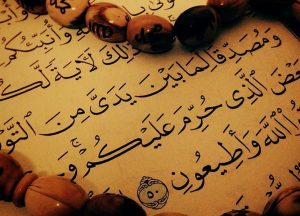 وَأُنَبِّئُكُم
ذَٰلِكَ لَآيَةً لَّكُ
وَمُصَدِّقًا لِّمَا بَيْنَ يَدَىَّ مِنَ ٱلتَّوْ
عْضَ ٱلَّذِى حُرِّمَ عَلَيْكُمْ ۚ وَ
ٱللَّهَ وَأَطِيعُونِ ٥٠